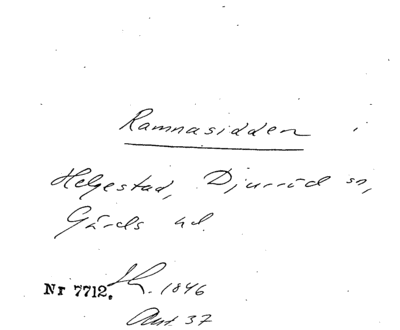 Ramnasidden i
Helgestad, Djurröd sn,
Gärds hd.
Nr 7712. Sk. 1846
Ant. 37